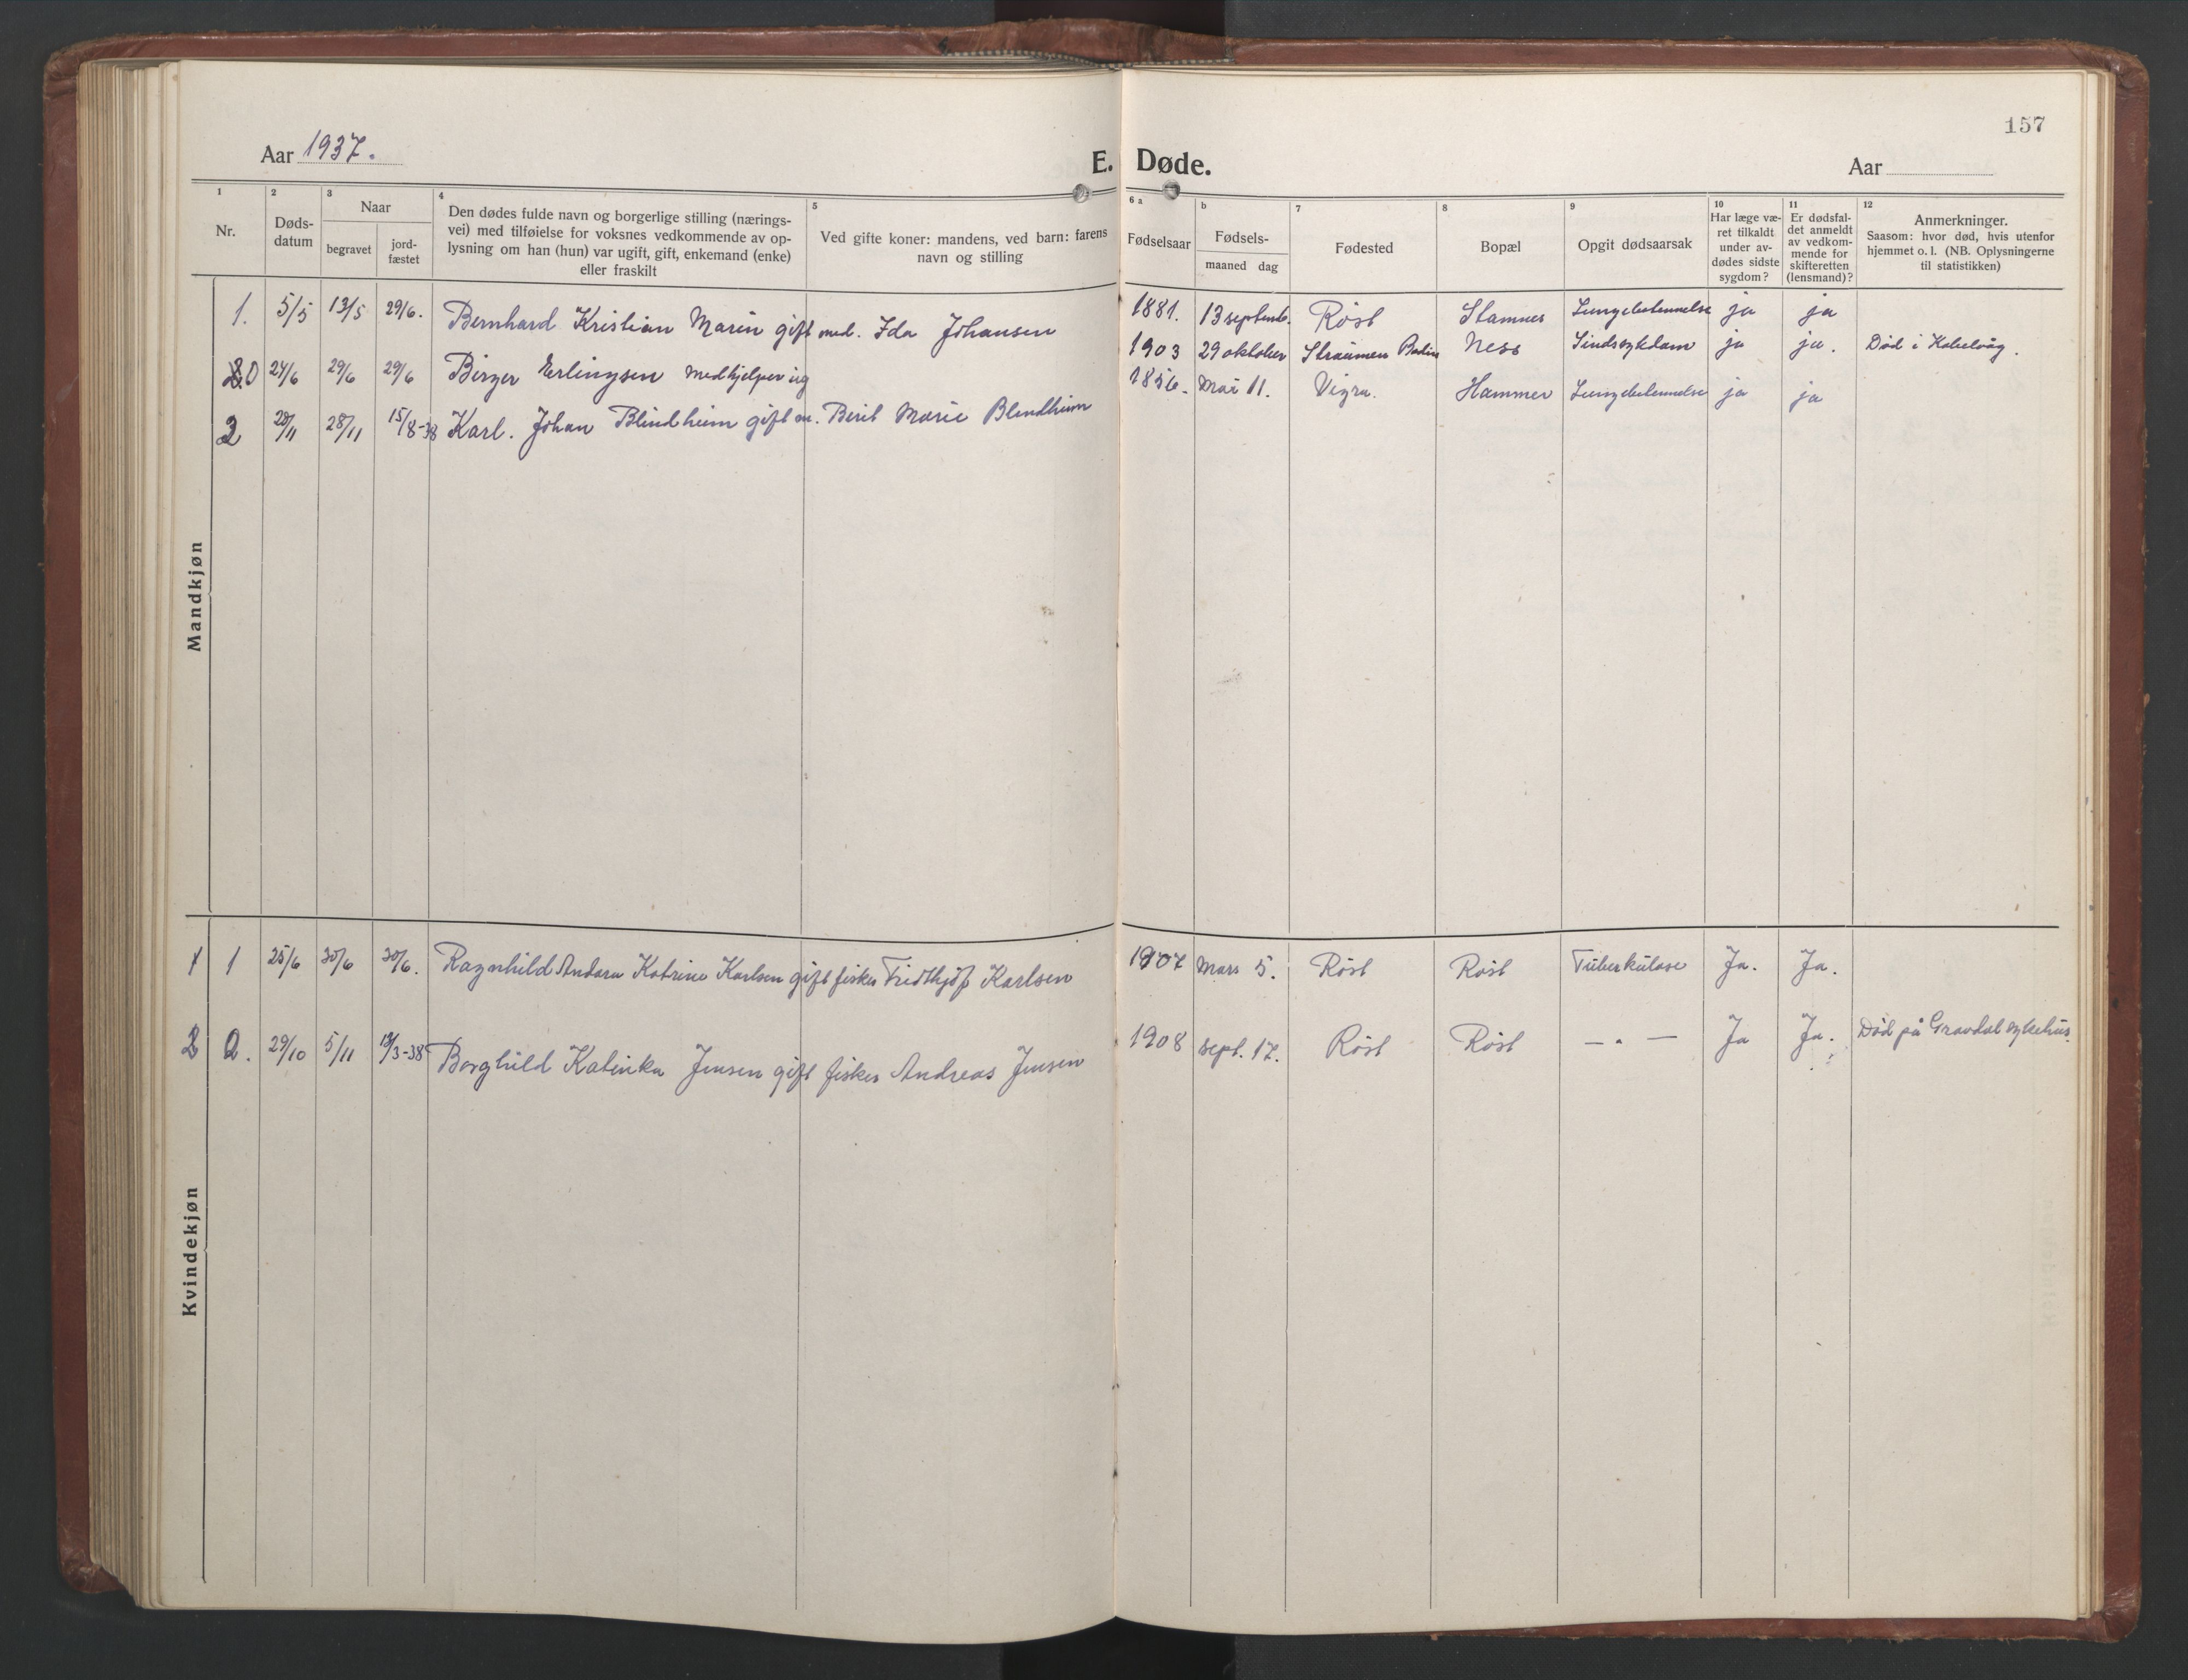 157
Aar 1937.
E. Døde.
Aar
1 2 3 4 5 6 a b 7 8 9 10 11 12
Nr.
Døds-
datum
Naar
begravet
jord-
fæstet
Den dødes fulde navn og borgerlige stilling (nærings-
vei) med tilføielse for voksnes vedkommende av op-
lysning om han (hun) var ugift, gift, enkemand (enke)
eller fraskilt
Ved gifte koner: mandens, ved barn: farens
navn og stilling
Fødselsaar
Fødsels-
maaned dag
Fødested
Bopæl
Opgit dødsaarsak
Har læge væ-
ret tilkaldt
under av-
dødes sidste
sygdom?
Er dødsfal-
det anmeldt
av vedkom-
mende for
skifteretten
(lensmand)?
Anmerkninger.
Saasom: hvor død, hvis utenfor
hjemmet o. l. (NB. Oplysningerne
til statistikken)
Mandkjøn
1. 5/5 13/5 29/6. Bernhard Kristian Marin gift med. Ida Johansen 1881. 13 septemb. Röst Stamnes Lungebetennelse ja ja
0 24/6 29/6 29/6 Birger Erlingsen medhjelper ug 1903 29 oktober Straumen Bodin Ness Sindssykdom ja ja. Død i Kabelvåg.
2 20/11 28/11 15/8-38 Karl. Johan Blindheim gift m. Berit Marie Blindheim 1856. Mai 11. Vigra. Hammer Lungebetennelse ja ja
Kvindekjøn
1 1 25/6 30/6 30/6. Ragnhild Andora Katrine Karlsen gift fisker Fridthjof Karlsen 1907 Mars 5. Röst Röst Tuberkulose Ja. Ja.
2 2. 29/10 5/11 13/3-38 Borghild Katinka Jensen gift fisker Andreas Jensen 1908 sept. 17. Röst Röst — " — Ja Ja. Død på Gravdal sykehus.